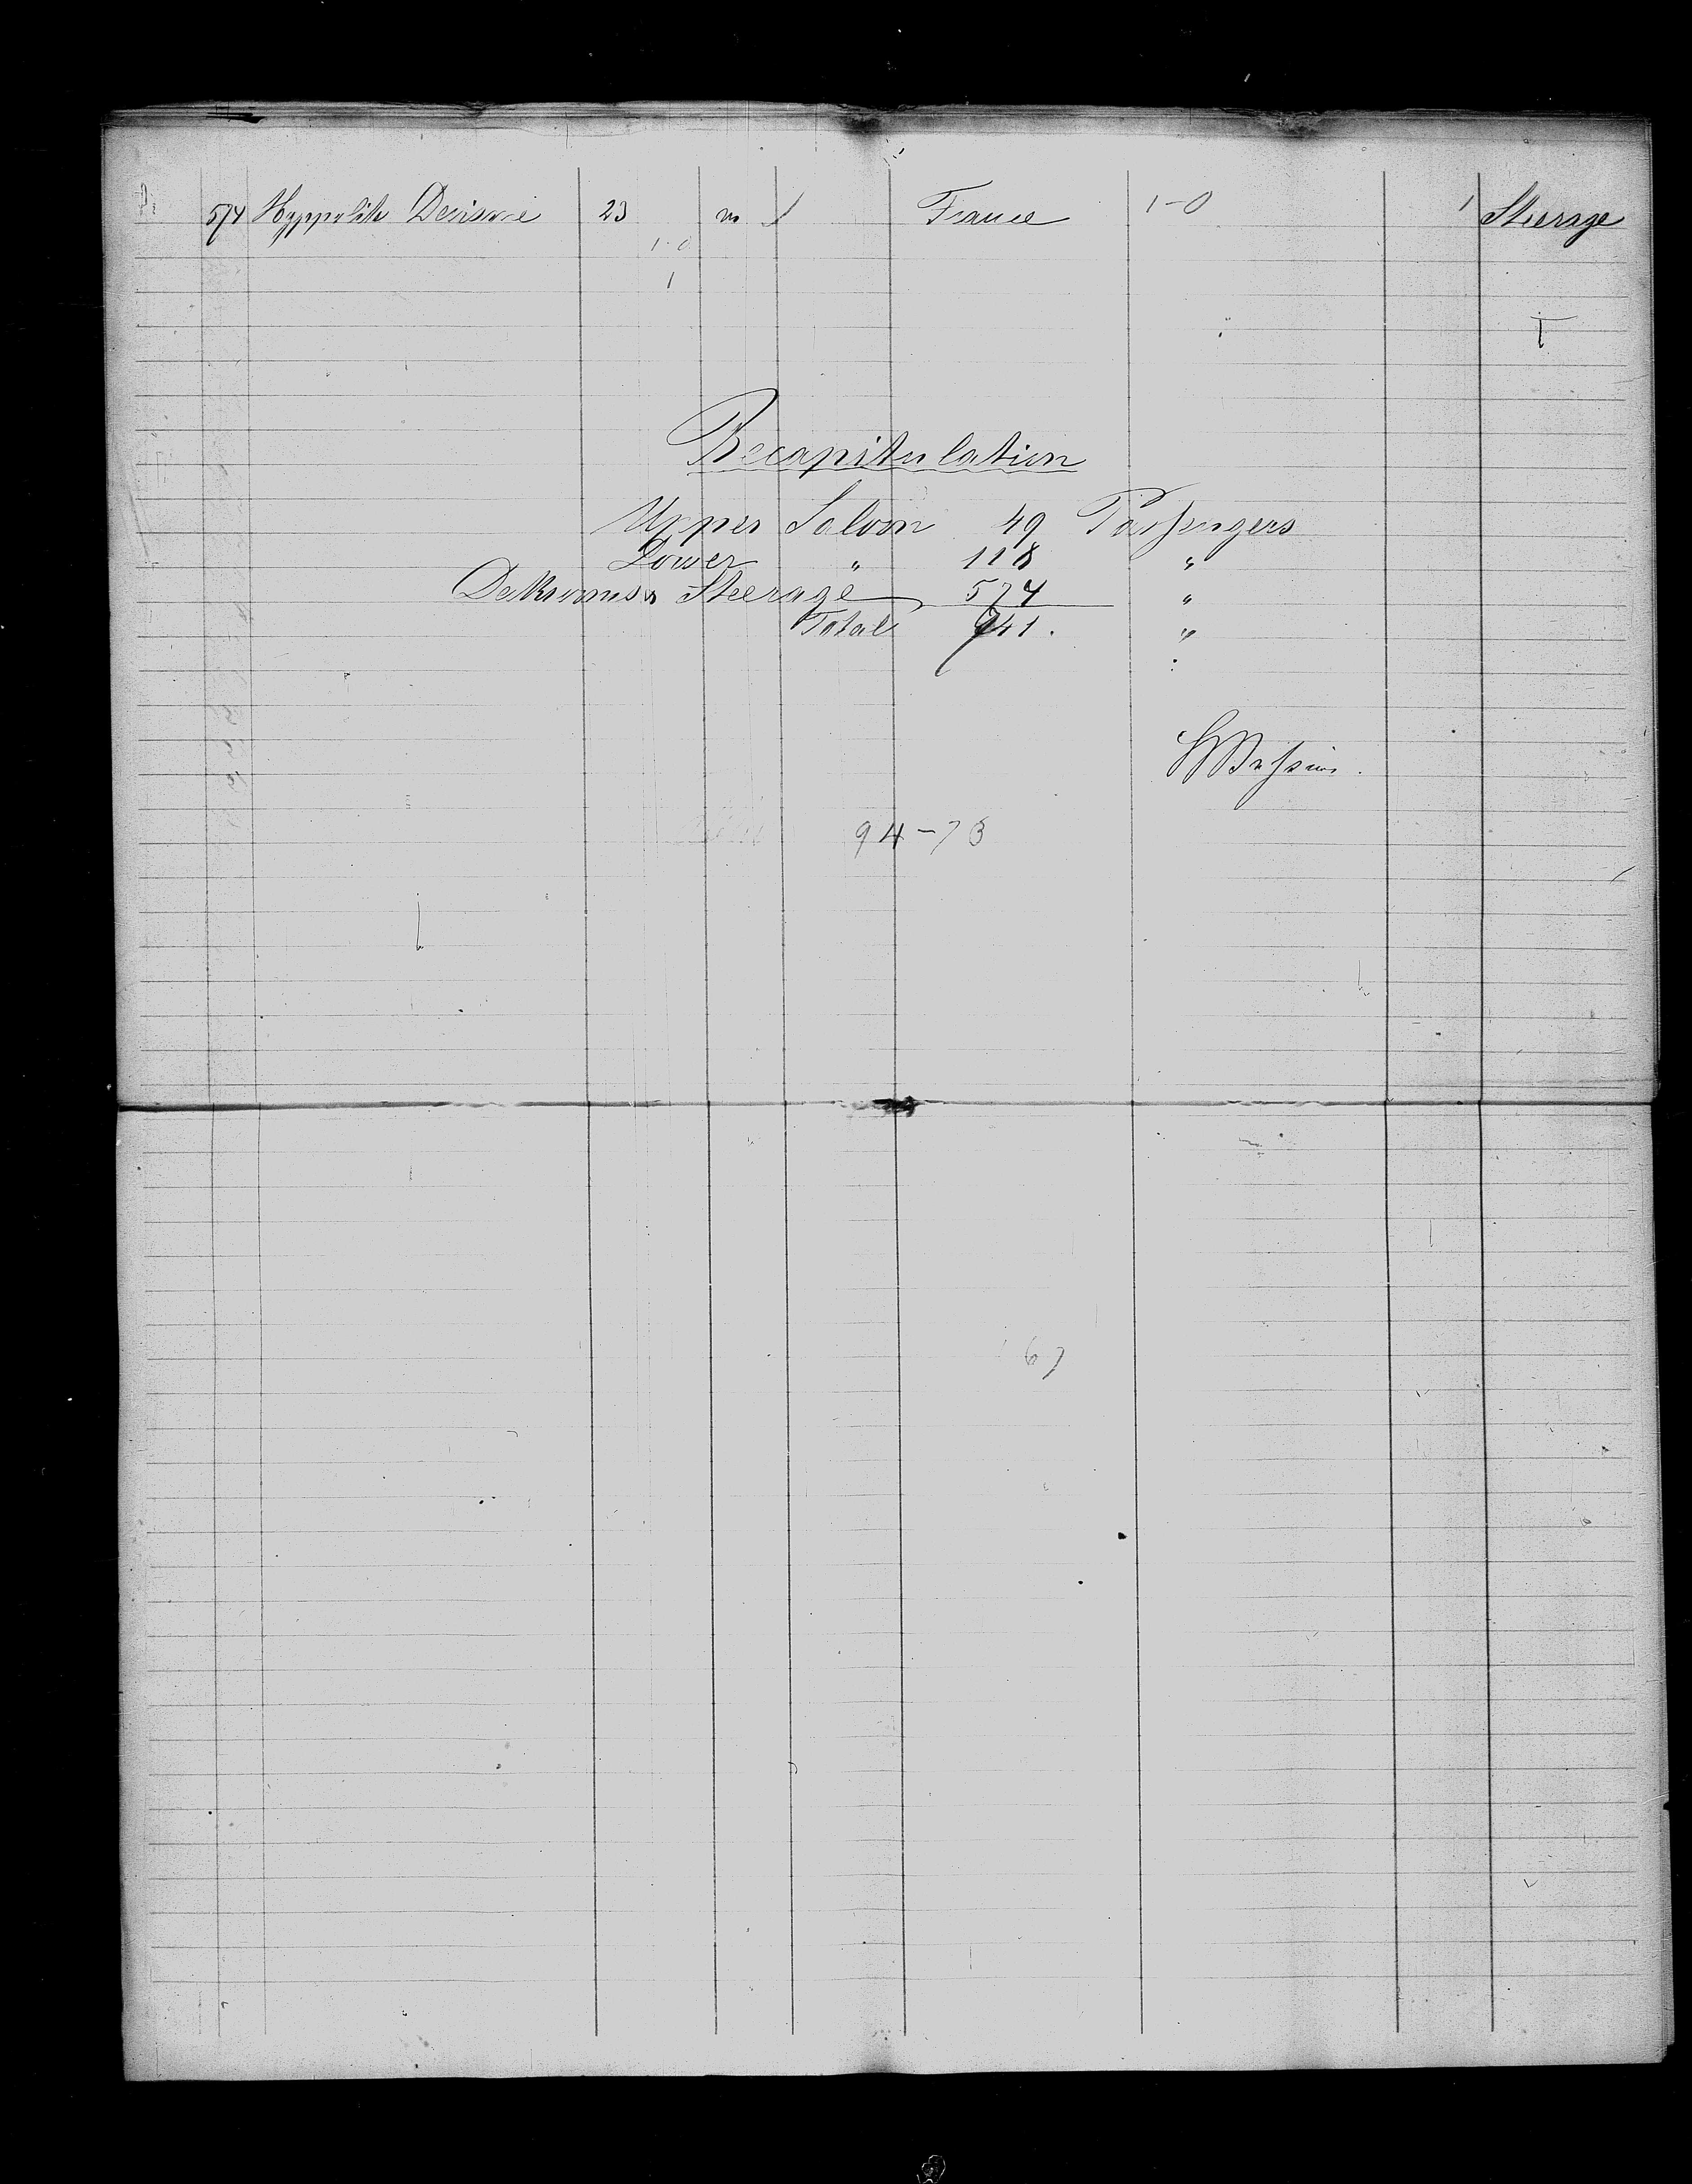 574 Hyppolite 23 m France 1-0 1 Steerage
1-0
1
Recapitulation
Upper Saloon 49 Passengers
Lower " 118 "
Steerage 574 "
Total 741. "
94-73
67